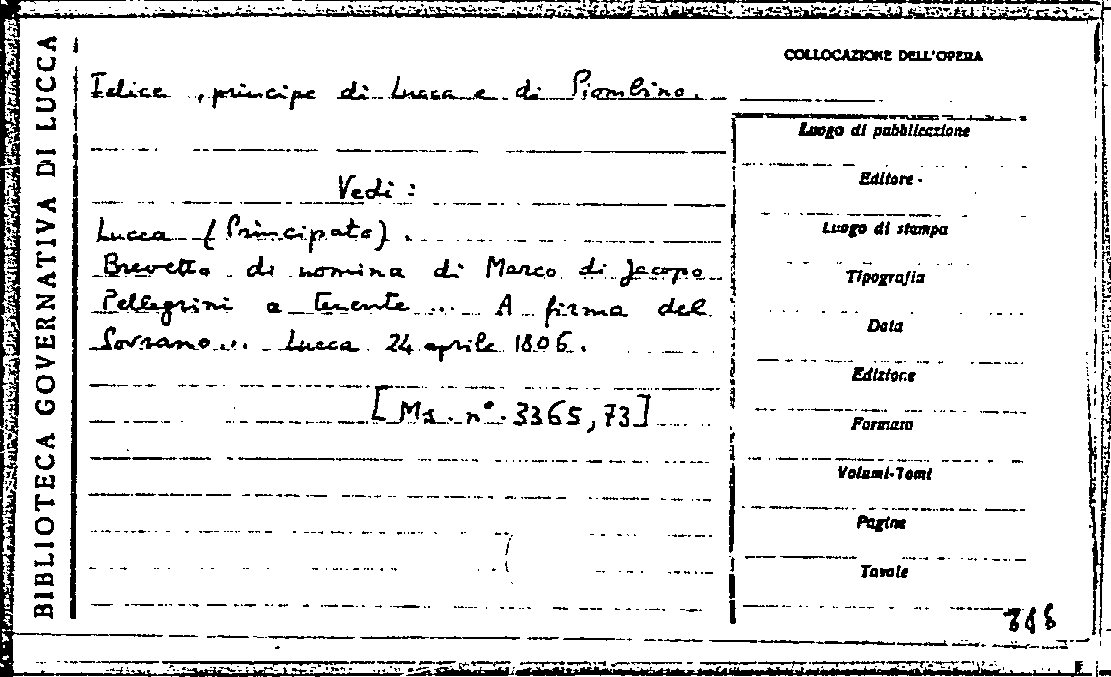 BIBLIOTECA GOVERNATIVA DI LUCCA
COLLOCAZIONE DELL'OPERA
Felice, principe di Lucca e di Piombino.
Vedi:
Lucca (Principato).
Brevetto di nomina di Marco di Jacopo
Pellegrini a tenente... A firma del
Sovrano... Lucca 24 aprile 1806.
[Ms. n°. 3365,73]
Luogo di pubblicazione
Editore
Luogo di stampa
Tipografia
Data
Edizione
Formato
Volumi-Tomi
Pagine
Tavole
F